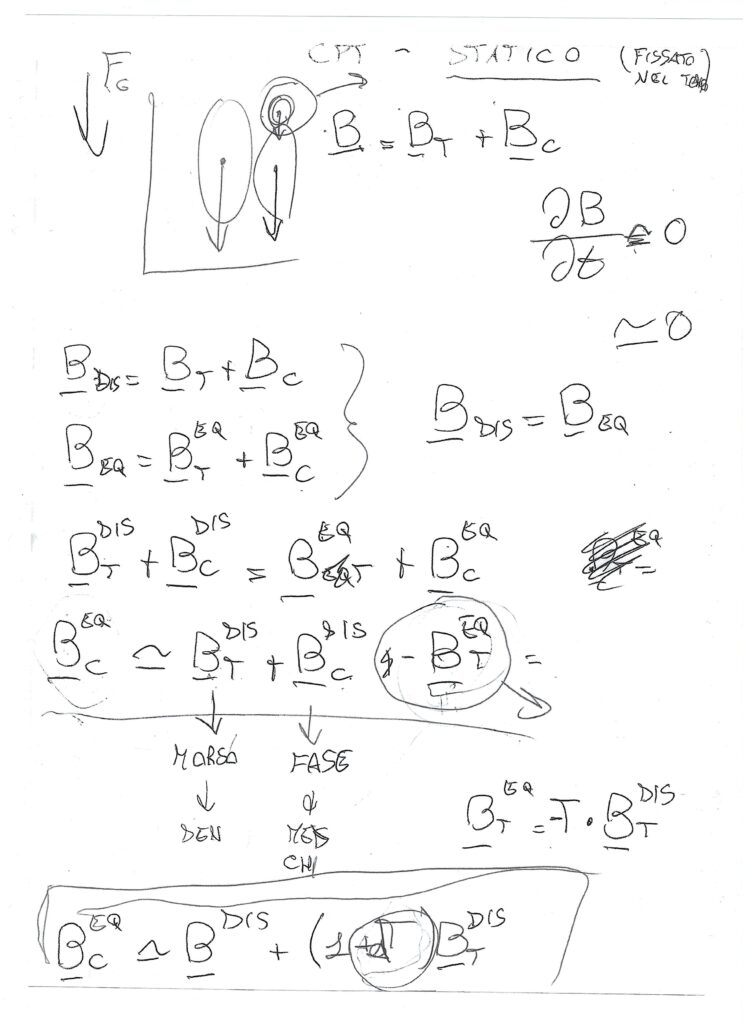 F_G
CPT ~ STATICO (FISSATO NEL TEMPO)
B = B_T + B_C
∂B/∂t ≃ 0
≃ 0
B_DIS = B_T + B_C
B_EQ = B_T^EQ + B_C^EQ
B_DIS = B_EQ
B_T^DIS + B_C^DIS = B_T^EQ + B_C^EQ
B_C^EQ ≃ B_T^DIS + B_C^DIS - B_T^EQ =
FASE
DEN
CH
B_T^EQ = -T · B_T^DIS
B_C^EQ ≃ B^DIS + (1+T) B_T^DIS